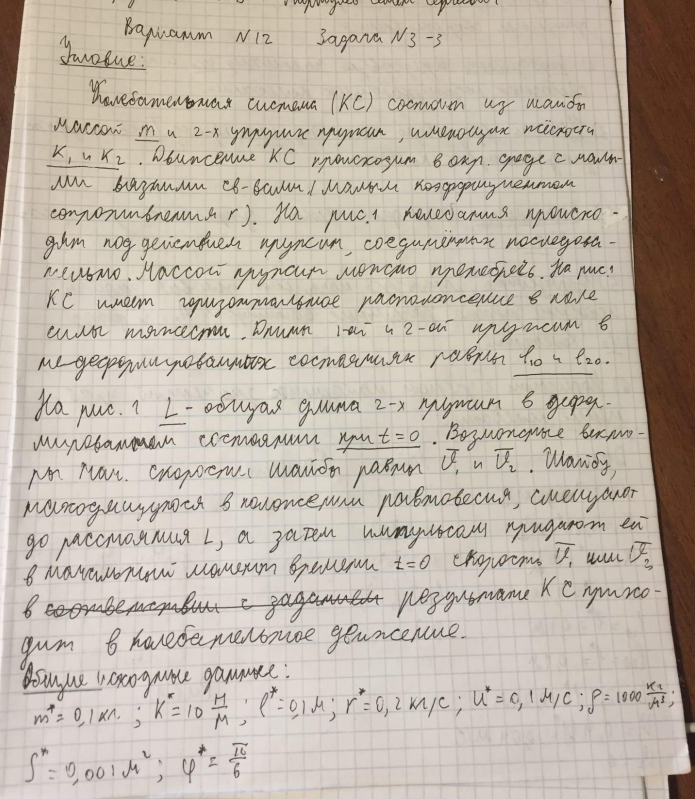 Вариант N12 Задача N3-3
Условие:
Колебательная система (КС) состоит из шайбы
массой m и 2-х упругих пружин, имеющих жёсткости
K₁ и K₂. Движение КС происходит в окр. среде с малы-
ми вязкими св-вами (малым коэффициентом
сопротивления r). На рис.1 колебания происхо-
дят под действием пружин, соединённых последова-
тельно. Массой пружин можно пренебречь. На рис.1
КС имеет горизонтальное расположение в поле
силы тяжести. Длины 1-ой и 2-ой пружин в
недеформированных состояниях равны l₁₀ и l₂₀.
На рис. 1 L - общая длина 2-х пружин в дефор-
мированном состоянии при t=0. Возможные векто-
ры нач. скорости шайбы равны V̅₁ и V̅₂. Шайбу,
находящуюся в положении равновесия, смещают
до расстояния L, а затем импульсом придают ей
в начальный момент времени t=0 скорость V̅₁ или V̅₂,
в соответствии с заданием результате КС прихо-
дит в колебательное движение.
Общие исходные данные:
m*=0,1 кг; K*=10 Н/м; l*=0,1 м; r*=0,2 кг/с; U*=0,1 м/с; ρ=1000 кг/м³;
S*=0,001 м²; φ*=π/6